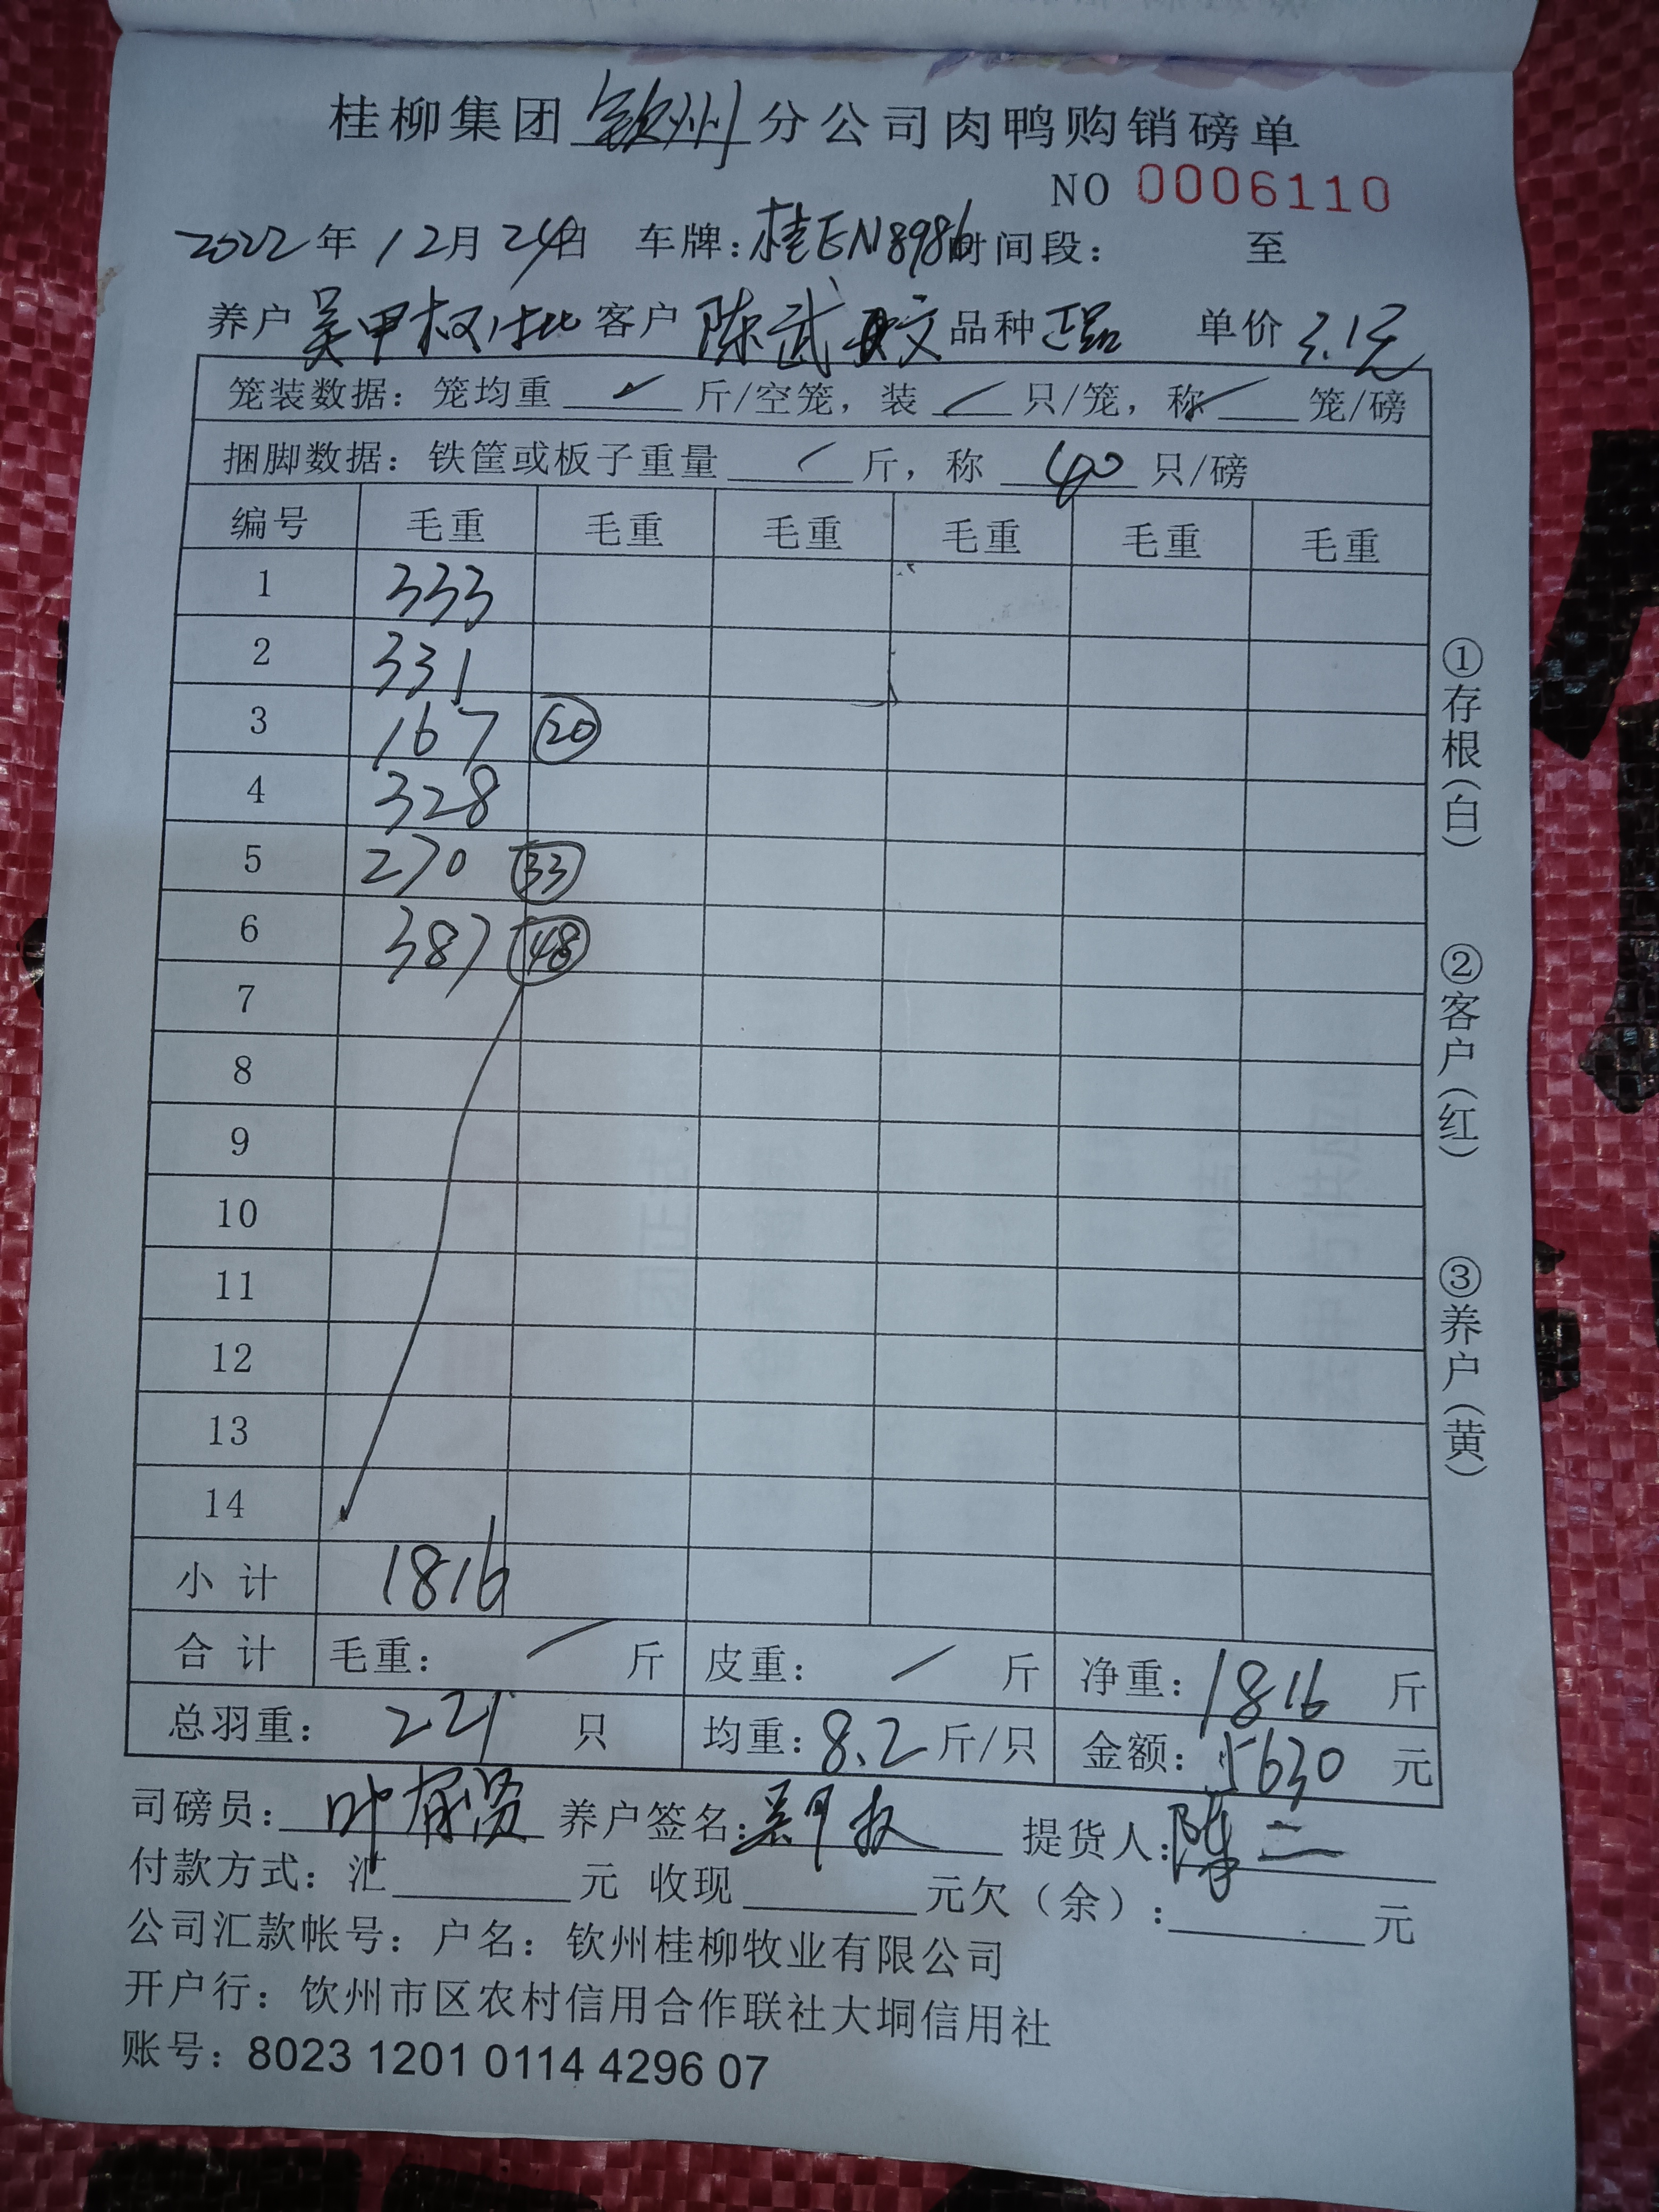 桂柳集团 钦州 分公司肉鸭购销磅单
NO 0006110
2022年 12月 24日 车牌：桂EN8986 时间段： 至
养户 吴甲权 客户 陈武 品种 正品 单价 3.1元
笼装数据：笼均重 斤/空笼，装 只/笼，称 笼/磅
捆脚数据：铁筐或板子重量 斤，称 40 只/磅
编号 毛重 毛重 毛重 毛重 毛重 毛重
1 333
2 331
3 167 20
4 328
5 270 33
6 387 48
7
8
9
10
11
12
13
14
小计 1816
合计 毛重： 斤 皮重： 斤 净重：1816 斤
总羽重： 221 只 均重：8.2 斤/只 金额：5630 元
司磅员： 养户签名： 提货人：陈二
付款方式：汇 元 收现 元欠（余）： 元
公司汇款帐号：户名：钦州桂柳牧业有限公司
开户行：钦州市区农村信用合作联社大垌信用社
账号：8023 1201 0114 4296 07
①存根（白）
②客户（红）
③养户（黄）